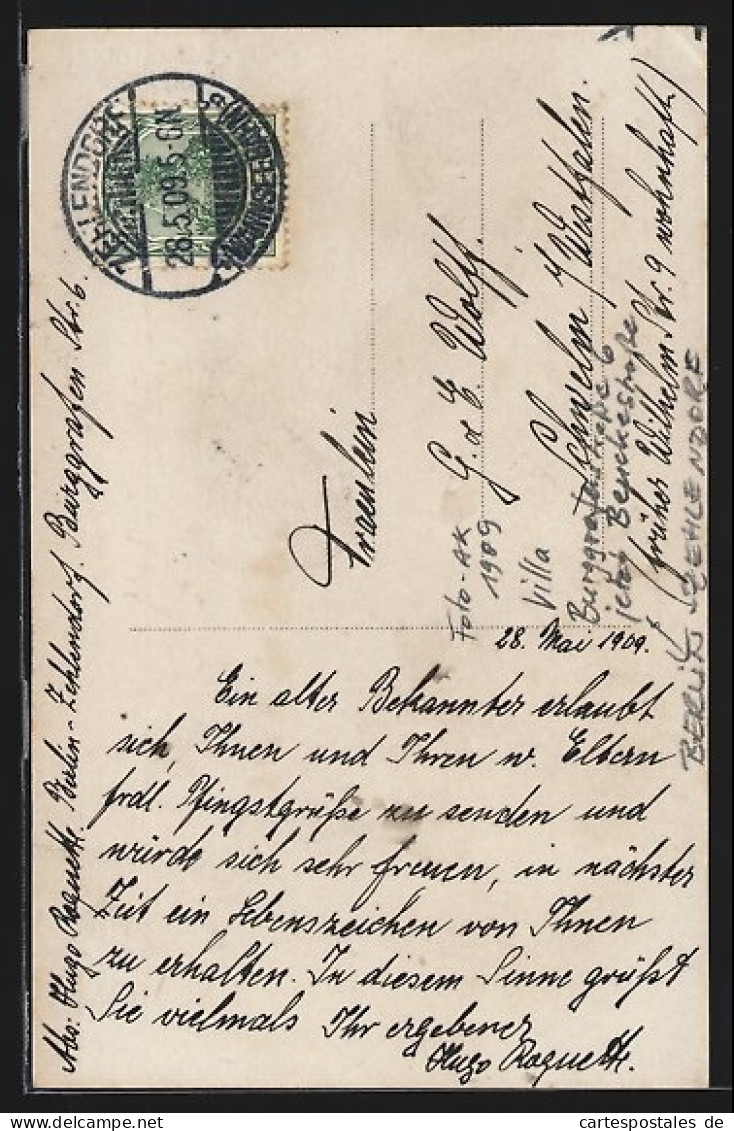 ZEHLENDORF
28.5.09.5-6N.
(WANNSEEBAHN)
Fraeulein
G. & E. Wolff.
Schwelm i/Westfalen.
(früher Wilhelm-Str. 9 wohnhaft)
Foto-AK
1909
Villa
Burggrafenstraße 6
jetzt Beuckestraße
BERLIN-ZEHLENDORF
28. Mai 1909.
Ein alter Bekannter erlaubt
sich, Ihnen und Ihren w. Eltern
frdl. Pfingstgrüße zu senden und
würde sich sehr freuen, in nächster
Zeit ein Lebenszeichen von Ihnen
zu erhalten. In diesem Sinne grüßt
Sie vielmals Ihr ergebener
Hugo Roquette.
Abs: Hugo Roquette. Berlin-Zehlendorf. Burggrafen Str. 6.
© cartespostales de delcampe.net